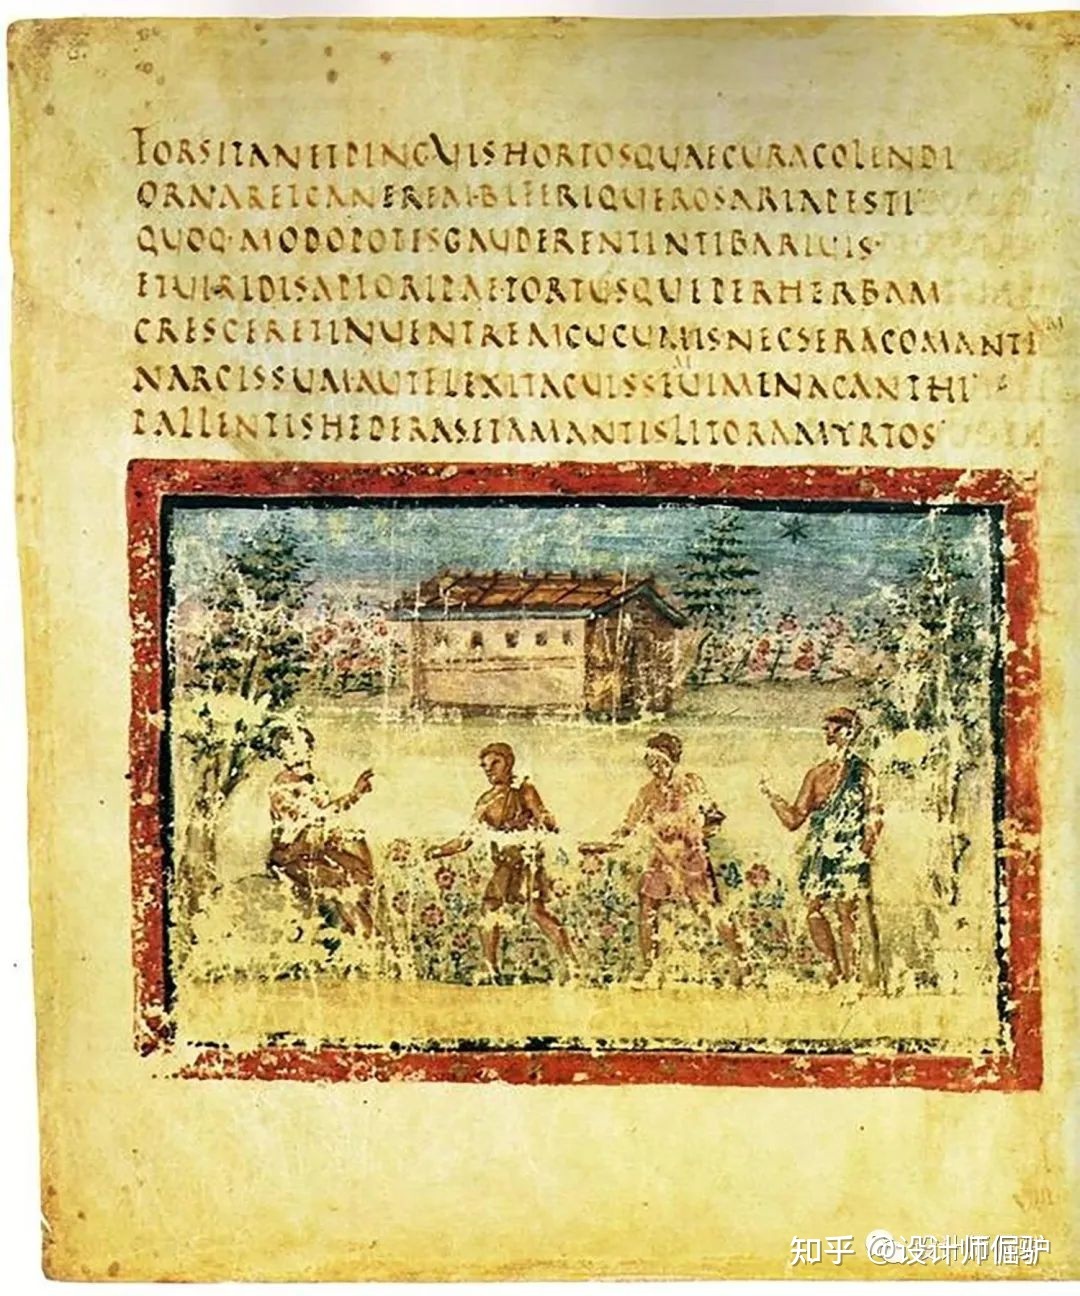 FORSITANETPINGVISHORTOSQUAECURACOLENDI
ORNARETCANEREMBIFERIQUEROSARIAPESTI
QUOQ·MODOPOTISGAUDERENTINTIBARIUIS·
ETUIRIDISAPIORIPAETORTUSQUEPERHERBAM
CRESCERETINUENTREMCUCUMISNECSERACOMANTE
NARCISSUMAUTFLEXITACUISSEUIMENACANTHI
PALLENTISHEDERASETAMANTISLITORAMYRTOS
知乎 @设计师倔驴